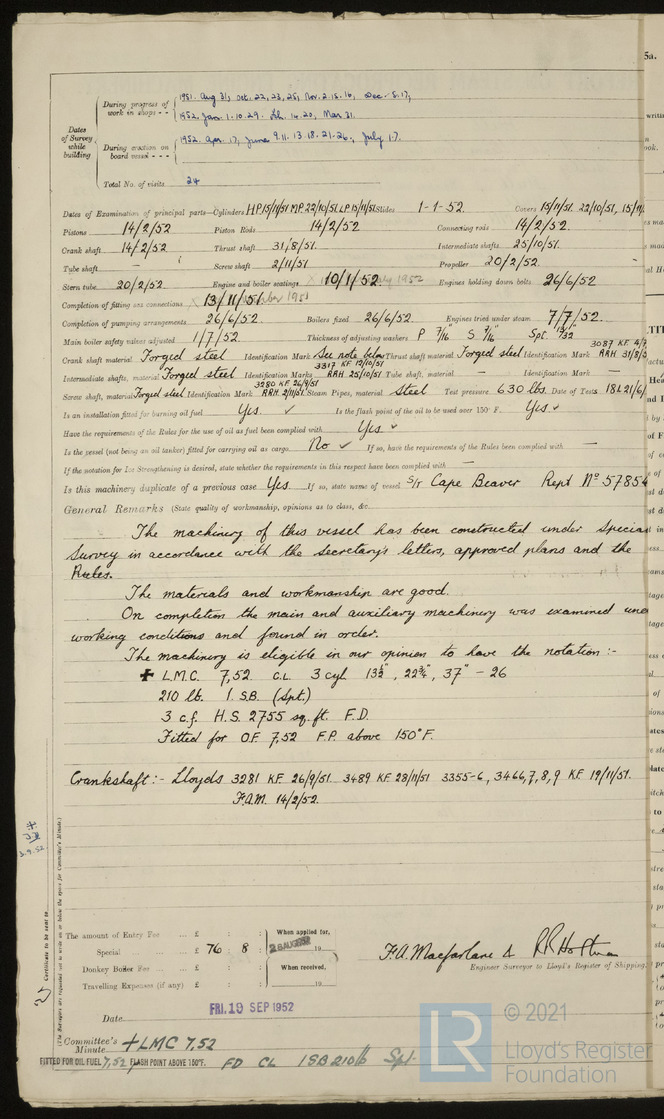 5a.
During progress of work in shops - - 1951. Aug 31, Oct. 22, 23, 25, Nov. 2. 15. 16, Dec. 5. 17,
1952. Jan. 1. 10. 29. Feb. 14. 20, Mar 31.
Dates of Survey while building
During erection on board vessel - - - 1952. Apr. 17, June 9. 11. 13. 18. 21. 26., July 1. 7.
Total No. of visits 24
Dates of Examination of principal parts—Cylinders HP 15/11/51 MP 22/10/51 LP 15/11/51 Slides 1-1-52. Covers 15/11/51. 22/10/51, 15/11/
Pistons 14/2/52 Piston Rods 14/2/52 Connecting rods 14/2/52.
Crank shaft 14/2/52 Thrust shaft 31/8/51. Intermediate shafts 25/10/51.
Tube shaft Screw shaft 2/11/51 Propeller 20/2/52.
Stern tube 20/2/52. Engine and boiler seatings 10/1/52. Engines holding down bolts 26/6/52
Completion of fitting sea connections 13/11/51
Completion of pumping arrangements 26/6/52. Boilers fixed 26/6/52. Engines tried under steam 7/7/52.
Main boiler safety valves adjusted 1/7/52. Thickness of adjusting washers P 7/16" S 7/16" Spt.
Crank shaft material Forged steel Identification Mark See note below Thrust shaft material Forged steel Identification Mark 3087 KF RRH 31/8/5
Intermediate shafts, material Forged steel Identification Marks 3317 KF 12/10/51 RRH. 25/10/51 Tube shaft, material — Identification Mark —
Screw shaft, material Forged steel Identification Mark 3280 KF 26/9/51 RRH. 2/11/51 Steam Pipes, material Steel Test pressure 630 lbs. Date of Tests 18 & 21/6/
Is an installation fitted for burning oil fuel Yes. ✓ Is the flash point of the oil to be used over 150° F. Yes ✓
Have the requirements of the Rules for the use of oil as fuel been complied with Yes ✓
Is the vessel (not being an oil tanker) fitted for carrying oil as cargo No ✓ If so, have the requirements of the Rules been complied with —
If the notation for Ice Strengthening is desired, state whether the requirements in this respect have been complied with —
Is this machinery duplicate of a previous case Yes. If so, state name of vessel S/T Cape Beaver Rept No 57854
General Remarks (State quality of workmanship, opinions as to class, &c.
The machinery of this vessel has been constructed under Special
Survey in accordance with the Secretary's letters, approved plans and the
Rules.
The materials and workmanship are good.
On completion the main and auxiliary machinery was examined und
working conditions and found in order.
The machinery is eligible in our opinion to have the notation :-
✠ L.M.C. 7,52 C.L. 3 cyl 13½", 22¾", 37" – 26
210 lb. 1 S.B. (Spt.)
3 c.f. H.S. 2755 sq. ft. F.D.
Fitted for O.F. 7,52 F.P. above 150°F.
Crankshaft :- Lloyds 3281 KF 26/9/51. 3489 KF 28/11/51 3355-6, 3466,7,8,9 KF 19/11/51.
F.A.M. 14/2/52.
(The Surveyors are requested not to write on or below the space for Committee's Minute.)
Certificate to be sent to
The amount of Entry Fee ... £ : : When applied for,
Special ... £ 76 : 8 : 19
Donkey Boiler Fee ... £ : : When received,
Travelling Expenses (if any) £ : : 19
F.A. Macfarlane &
Engineer Surveyor to Lloyd's Register of Shipping.
Date FRI. 19 SEP 1952
Committee's Minute + LMC 7,52
FITTED FOR OIL FUEL 7,52 FLASH POINT ABOVE 150°F. FD CL 1SB 210 lb Spt.
LR © 2021
Lloyd's Register
Foundation